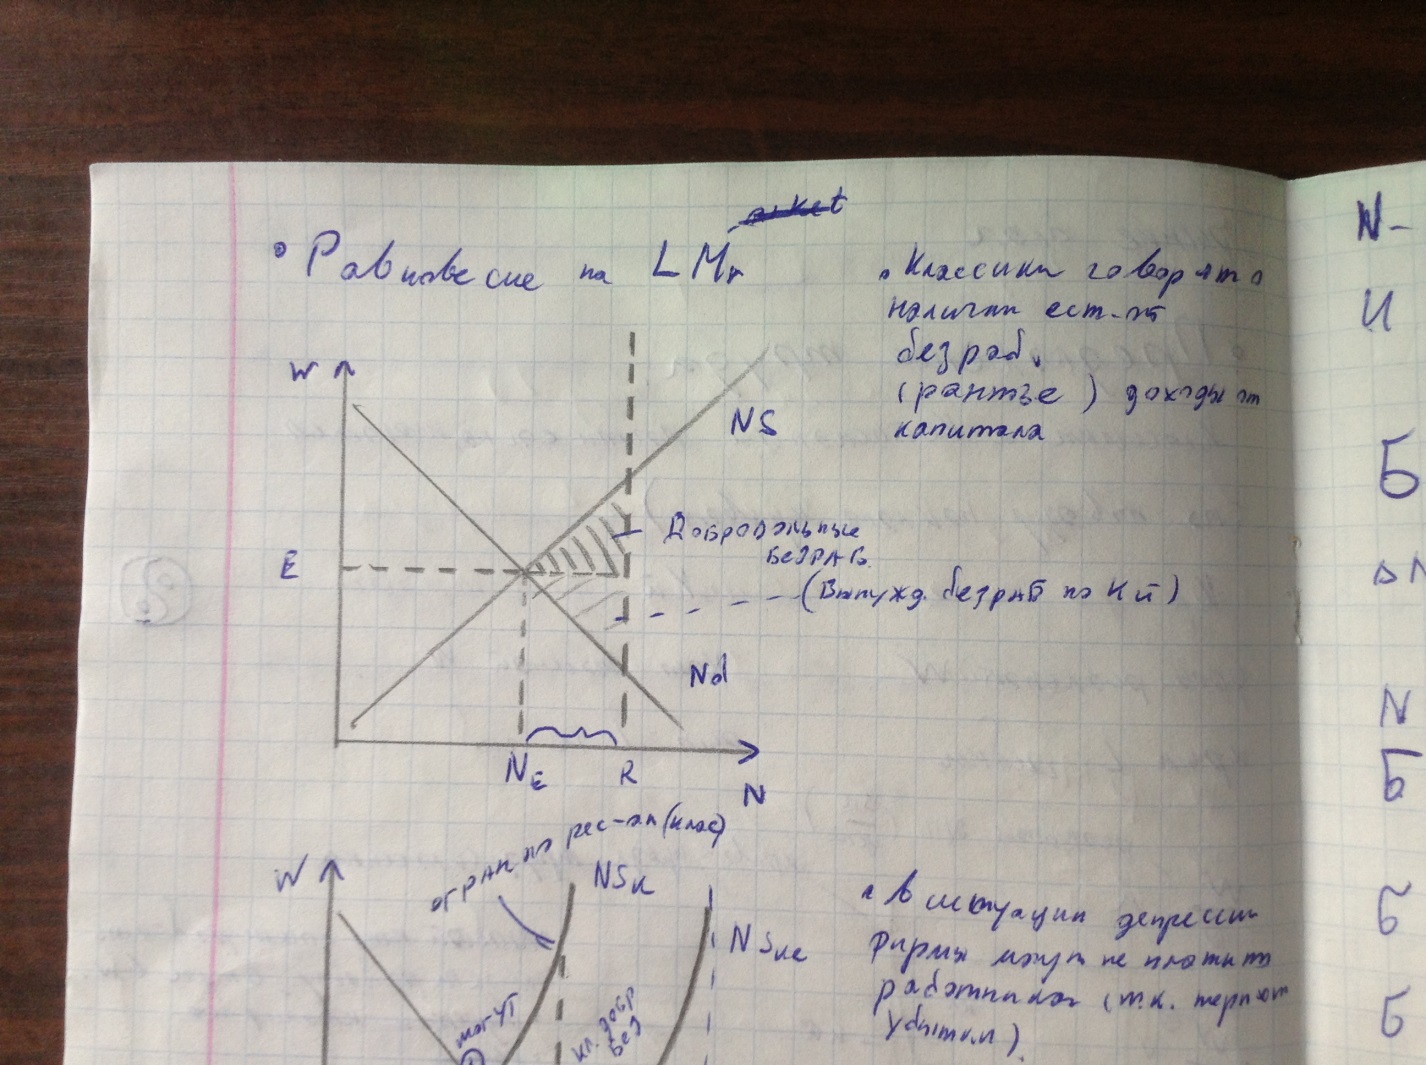 • Равновесие на LMr
• Классики говорят о
наличии ест-й
безраб.
(рантье) доходы от
капитала
W
NS
E
Добровольные
безраб.
(Вынужд. безраб по К й)
Nd
NE
R
N
огран по рес-ам (клас)
W
NSк
NSке
могут
кл. добр
без
• в ситуации депрессии
фирмы могут не платить
работникам (т.к. терпят
убытки)
N-
И
Б
N
Б
Б
Б